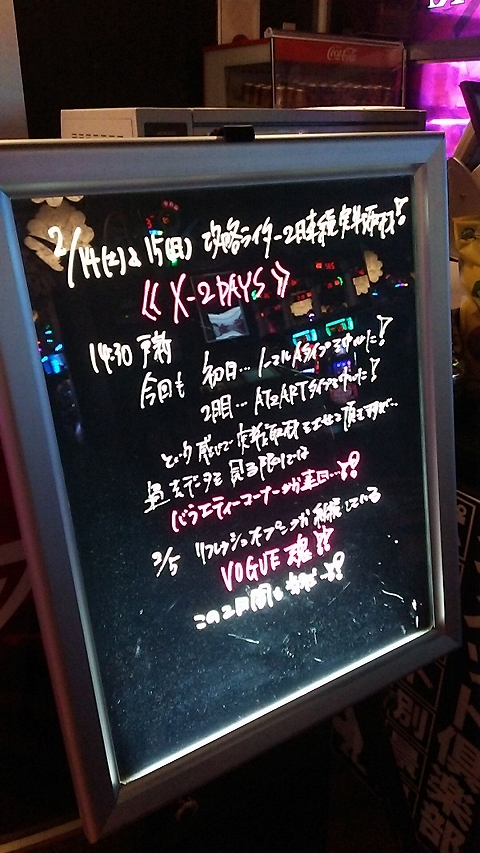 Coca-Cola
2/14(土)&15(日) 攻略ライター2日連続実戦取材!
《X-2DAYS》
14:30 更新
今回も 初日… ノーマルAタイプを中心に!
2日目… AT&ARTタイプを中心に!
という感じで実戦取材をさせて頂きますが…
過去データを見る限りでは
バラエティーコーナーが注目…!?
2/5 リフレッシュオープンから継続している
VOGUE 魂!!
この2日間も
別
ット倶楽部